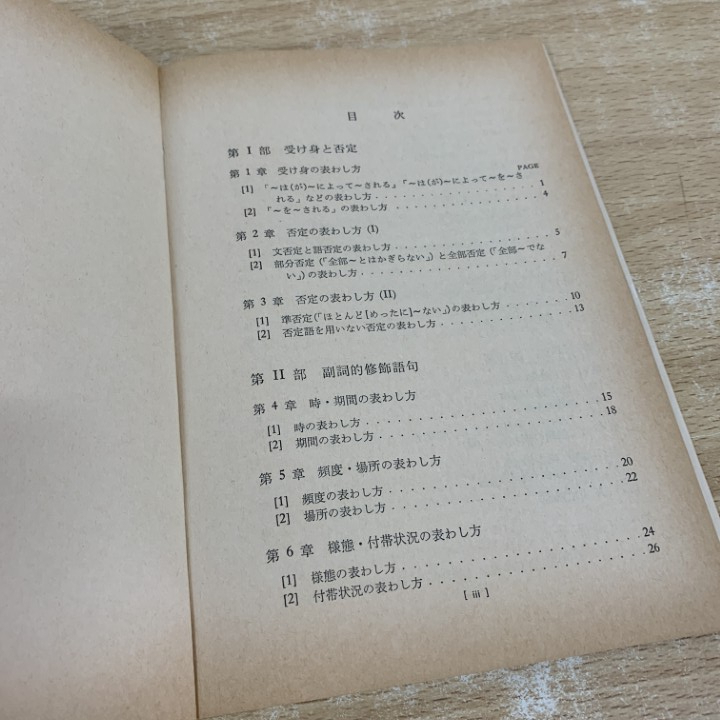 目 次
第 I 部 受け身と否定
第 1 章 受け身の表わし方
PAGE
[1] 「〜は(が)〜によって〜される」「〜は(が)〜によって〜を〜さ
れる」などの表わし方 . . . . . . . . . . . . . . . . 1
[2] 「〜を〜される」の表わし方 . . . . . . . . . . . . . . 4
第 2 章 否定の表わし方 (I)
[1] 文否定と語否定の表わし方 . . . . . . . . . . . . . . . 5
[2] 部分否定(「全部〜とはかぎらない」)と全部否定(「全部〜でな
い」)の表わし方 . . . . . . . . . . . . . . . . . . 7
第 3 章 否定の表わし方 (II)
[1] 準否定(「ほとんど[めったに]〜ない」)の表わし方 . . . . . . . 10
[2] 否定語を用いない否定の表わし方 . . . . . . . . . . . . 13
第 II 部 副詞的修飾語句
第 4 章 時・期間の表わし方
[1] 時の表わし方 . . . . . . . . . . . . . . . . . . . 15
[2] 期間の表わし方 . . . . . . . . . . . . . . . . . . 18
第 5 章 頻度・場所の表わし方
[1] 頻度の表わし方 . . . . . . . . . . . . . . . . . . 20
[2] 場所の表わし方 . . . . . . . . . . . . . . . . . . 22
第 6 章 様態・付帯状況の表わし方
[1] 様態の表わし方 . . . . . . . . . . . . . . . . . . 24
[2] 付帯状況の表わし方 . . . . . . . . . . . . . . . . 26
[ iii ]